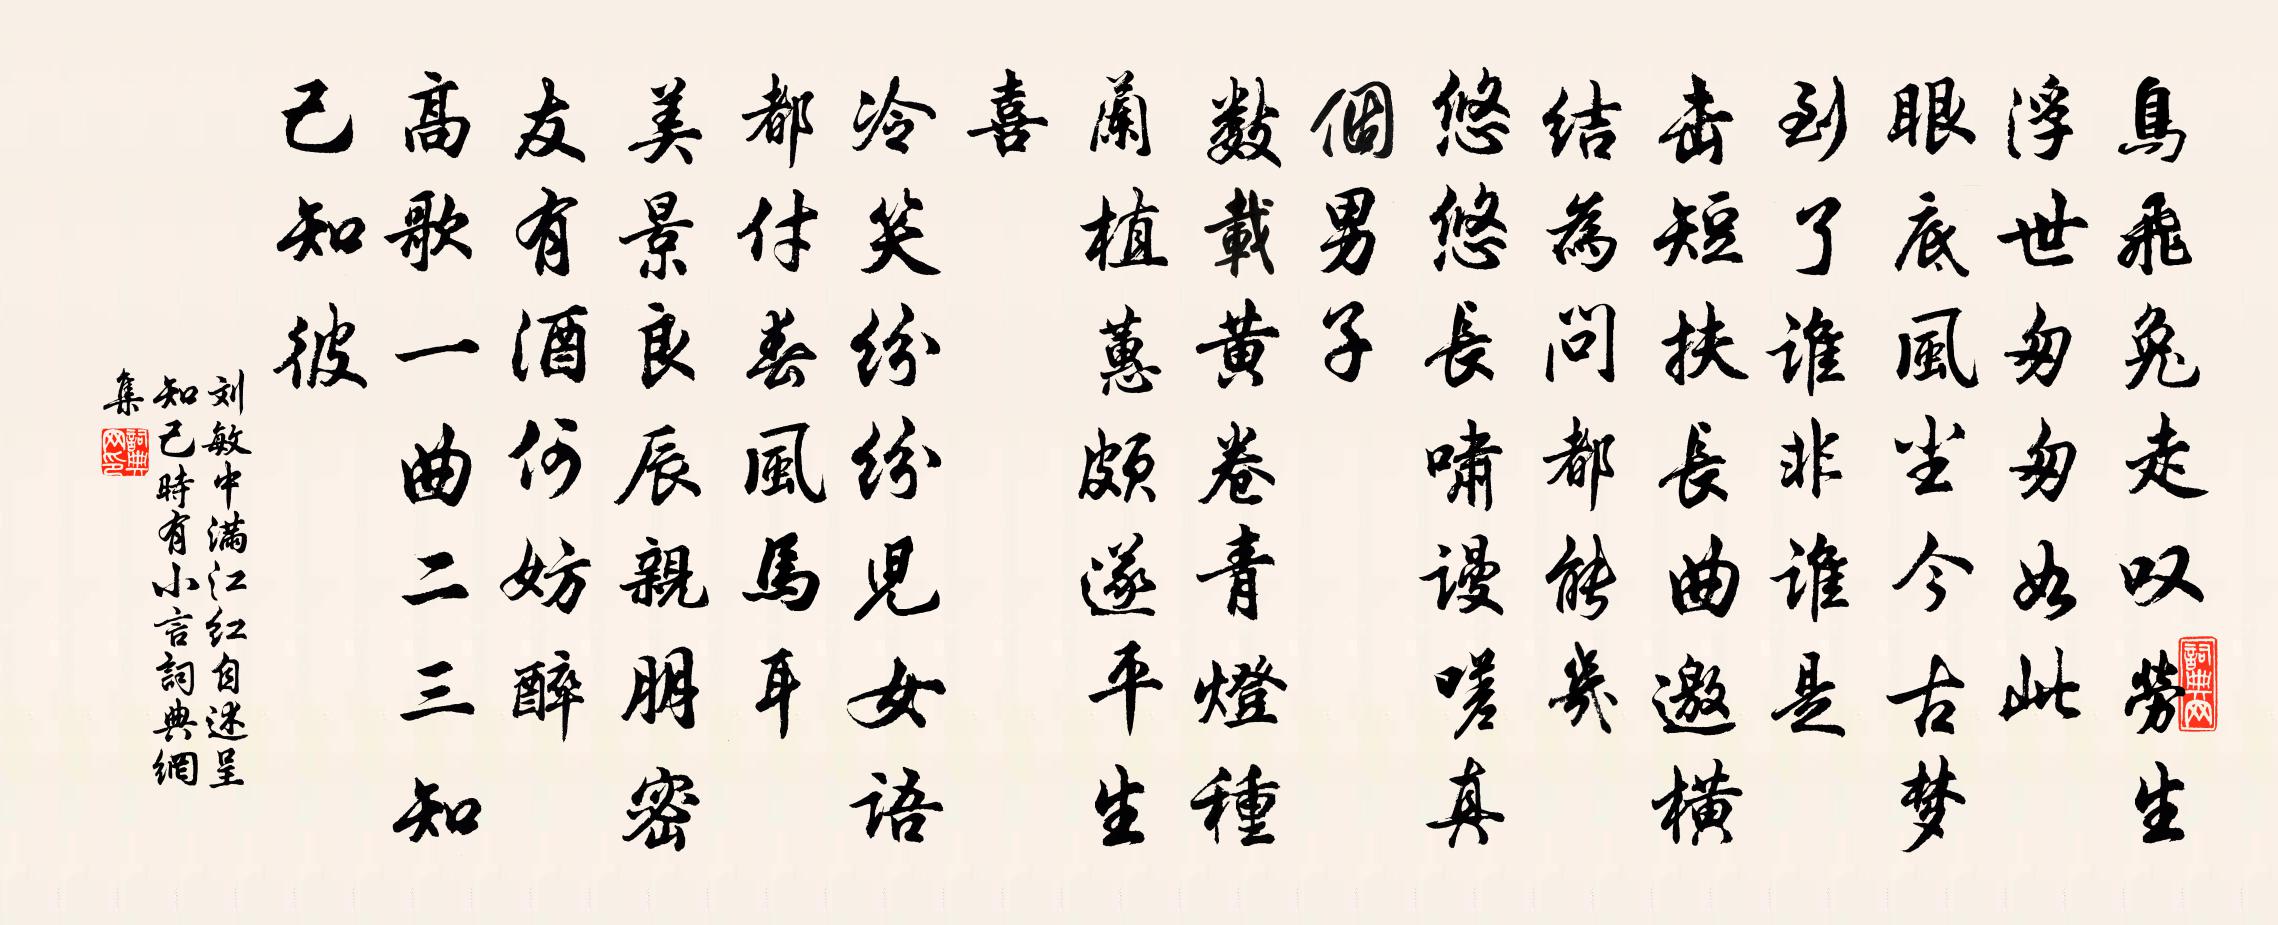 鳥飛兔走叹勞生
浮世匆匆如此
眼底風尘今古梦
到了誰非誰是
截短扶長曲邀橫
结為问都能幾
悠悠長嘯謾嗟真
個男子
數載黄卷青燈種
蘭植蕙頗遂平生
喜
冷笑纷纷兒女语
都付春風馬耳
美景良辰親朋密
友有酒何妨醉
高歌一曲二三知
己知彼
刘敏中满江红自述呈
知己時有小言詞典網
集
詞典网
詞典网印